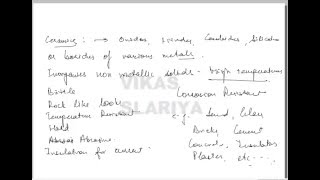 Ceramics: → Oxides, Nitrides, Carbides, Silicates
or borides of various metals.
Inorganic non metallic solids - High temperature
Brittle
Corrosion Resistant
Rock like look
Temperature Resistant
e.g. Sand, Glass
Hard
Bricks, Cement
Abrasive
Concrete, Insulators
Insulation for current
Plaster, etc
VIKAS
SLARIYA